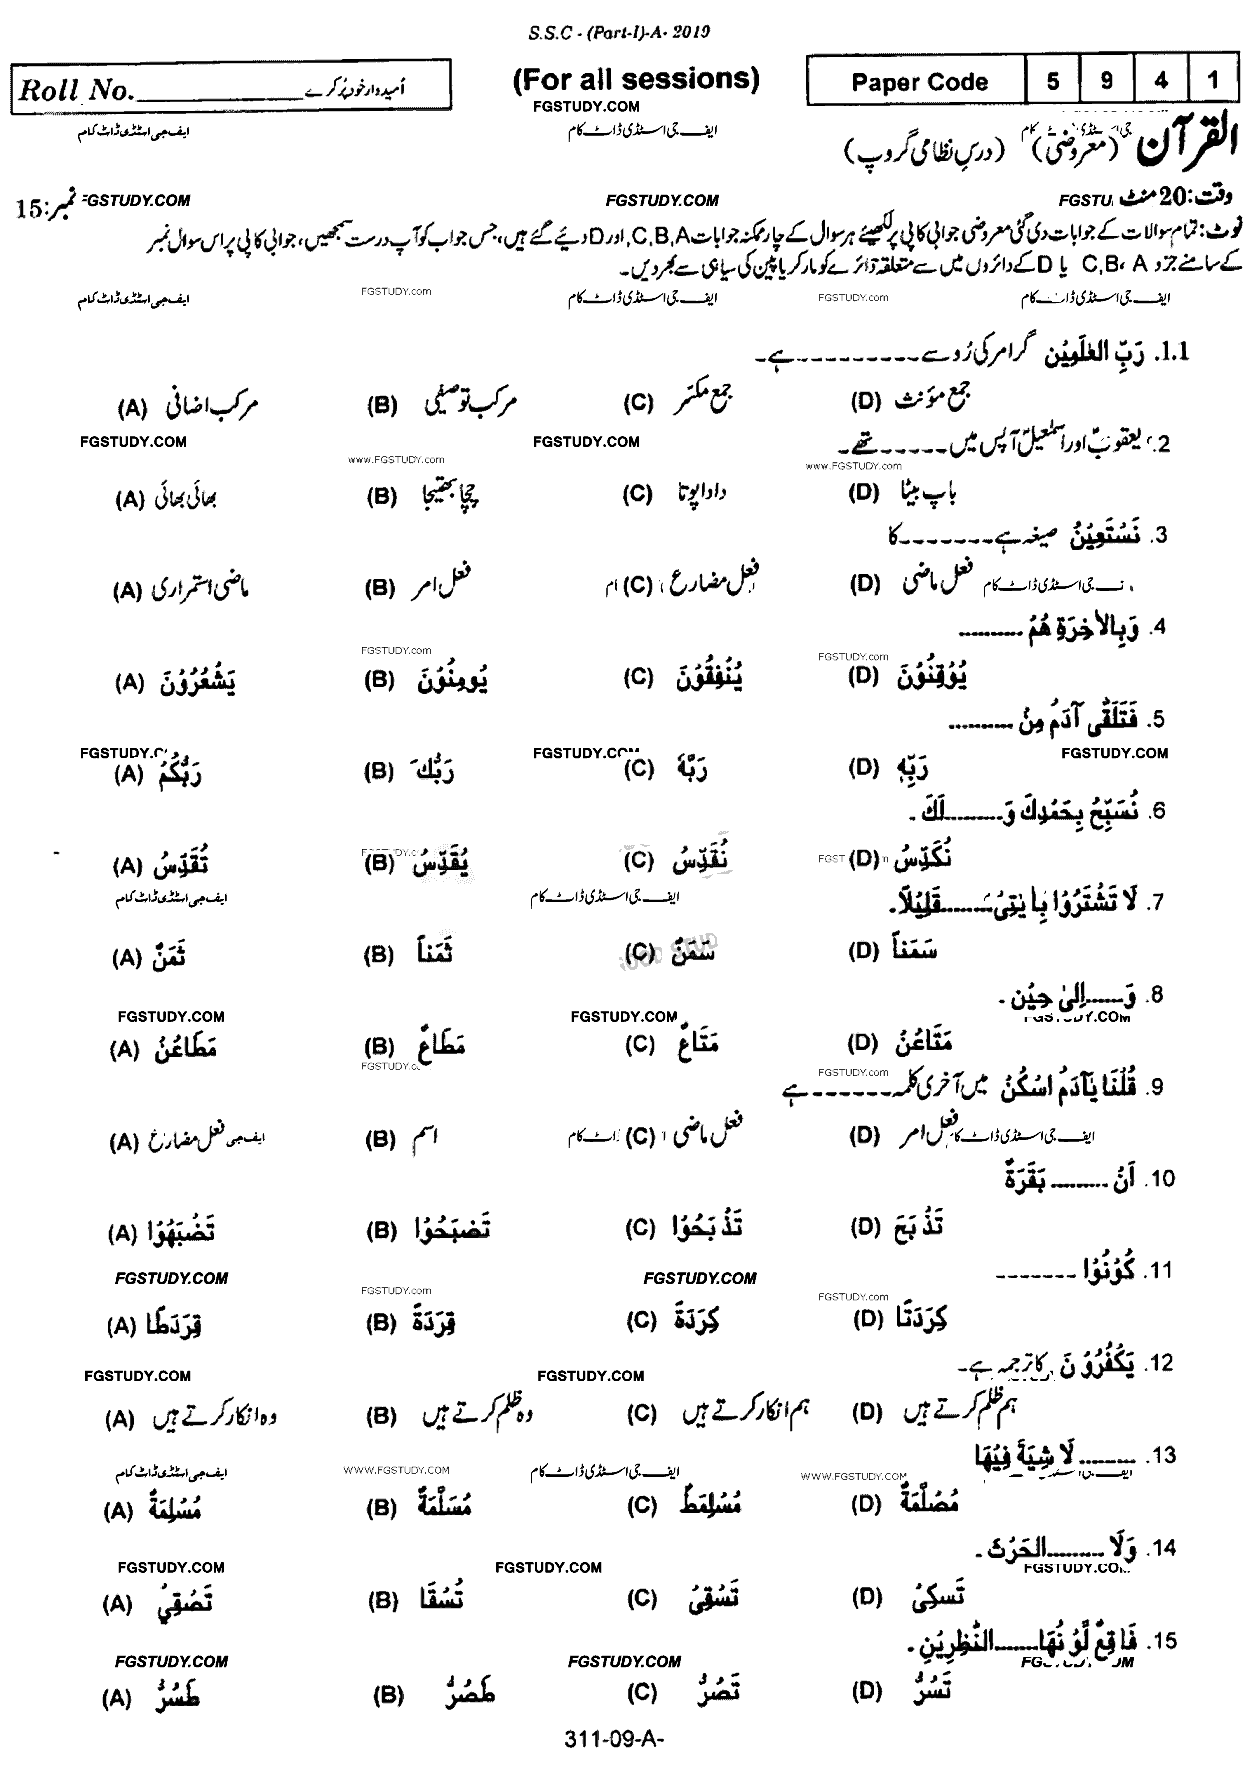 S.S.C - (Part-I)-A- 2019
Roll No.____________ اُمیدوار خود پُر کرے (For all sessions) Paper Code 5 9 4 1
FGSTUDY.COM
ایف جی اسٹڈی ڈاٹ کام ایف جی اسٹڈی ڈاٹ کام
القرآن (معروضی) (درسِ نظامی گروپ)
وقت:20 منٹ FGSTU FGSTUDY.COM FGSTUDY.COM نمبر:15
نوٹ: تمام سوالات کے جوابات دی گئی معروضی جوابی کاپی پر لکھیئے ہر سوال کے چار ممکنہ جوابات C,B,A, اور D دیئے گئے ہیں، جس جواب کو آپ درست سمجھیں، جوابی کاپی پر اس سوال نمبر
کے سامنے جزو C,B، A یا D کے دائروں میں سے متعلقہ دائرے کو مارکر یا پین کی سیاہی سے بھر دیں۔
ایف جی اسٹڈی ڈاٹ کام FGSTUDY.com ایف جی اسٹڈی ڈاٹ کام FGSTUDY.com ایف جی اسٹڈی ڈاٹ کام
1.1. رَبِّ العٰلَمِیْن گرامر کی رُو سے ---------- ہے۔
(A) مرکب اضافی (B) مرکب توصیفی (C) جمع مکسّر (D) جمع مؤنث
FGSTUDY.COM FGSTUDY.COM
2. یعقوبؑ اور اسمٰعیلؑ آپس میں ------ تھے۔
www.FGSTUDY.com www.FGSTUDY.com
(A) بھائی بھائی (B) چچا بھتیجا (C) دادا پوتا (D) باپ بیٹا
3. نَسْتَعِیْنُ صیغہ ہے -------- کا
(A) ماضی استمراری (B) فعل امر (C) فعل مضارع (D) فعل ماضی
4. وَبِالْاٰخِرَةِ هُمْ ----------
FGSTUDY.com FGSTUDY.com
(A) یَشْعُرُوْنَ (B) یُومِنُوْنَ (C) یُنْفِقُوْنَ (D) یُوْقِنُوْنَ
5. فَتَلَقّٰی آدَمُ مِنْ ----------
FGSTUDY.COM
(A) رَبُّکُمْ (B) رَبُّكَ (C) رَبَّهٗ (D) رَبِّهٖ
6. نُسَبِّحُ بِحَمْدِكَ وَ--------- لَكَ ۔
(A) تُقَدِّسُ (B) یُقَدِّسُ (C) نُقَدِّسُ (D) نُکَدِّسُ
ایف جی اسٹڈی ڈاٹ کام ایف جی اسٹڈی ڈاٹ کام
7. لَا تَشْتَرُوْا بِاٰیٰتِیْ --------- قَلِیْلاً۔
(A) ثَمَنٌ (B) ثَمَناً (C) سَمَنٌ (D) سَمَناً
8. وَ------ اِلیٰ حِیْن ۔
FGSTUDY.COM FGSTUDY.COM
(A) مَطَاعُنْ (B) مَطَاعٌ (C) مَتَاعٌ (D) مَتَاعُنْ
FGSTUDY.com
9. قُلْنَا یَآدَمُ اسْکُنْ میں آخری کلمہ -------- ہے
(A) فعل مضارع (B) اسم (C) فعل ماضی (D) فعل امر
10. اَنْ --------- بَقَرَةً
(A) تَضْبَهُوْا (B) تَضْبَحُوْا (C) تَذْبَحُوْا (D) تَذْبَحَ
11. کُوْنُوْا -------
FGSTUDY.COM FGSTUDY.com FGSTUDY.COM FGSTUDY.com
(A) قِرَدَطًا (B) قِرَدَةً (C) کِرَدَةً (D) کِرَدَتًا
12. یَکْفُرُوْنَ کا ترجمہ ہے۔
FGSTUDY.COM FGSTUDY.COM
(A) وہ انکار کرتے ہیں (B) وہ ظلم کرتے ہیں (C) ہم انکار کرتے ہیں (D) ہم ظلم کرتے ہیں
13. --------- لَا شِیَةَ فِیْهَا
ایف جی اسٹڈی ڈاٹ کام WWW.FGSTUDY.COM ایف جی اسٹڈی ڈاٹ کام WWW.FGSTUDY.COM
(A) مُسْلِمَةٌ (B) مُسَلَّمَةٌ (C) مُسْلِمَطٌ (D) مُصْلَّمَةٌ
14. وَلَا --------- الحَرْثَ ۔
FGSTUDY.COM FGSTUDY.COM
(A) تَصْقِیْ (B) تُسْقَا (C) تَسْقِیْ (D) تَسکِیْ
15. فَاقِعٌ لَّوْنُهَا ------ النّٰظِرِیْنِ ۔
FGSTUDY.COM FGSTUDY.COM
(A) طَسُرُّ (B) طَصُرُّ (C) تَصُرُّ (D) تَسُرُّ
311-09-A-